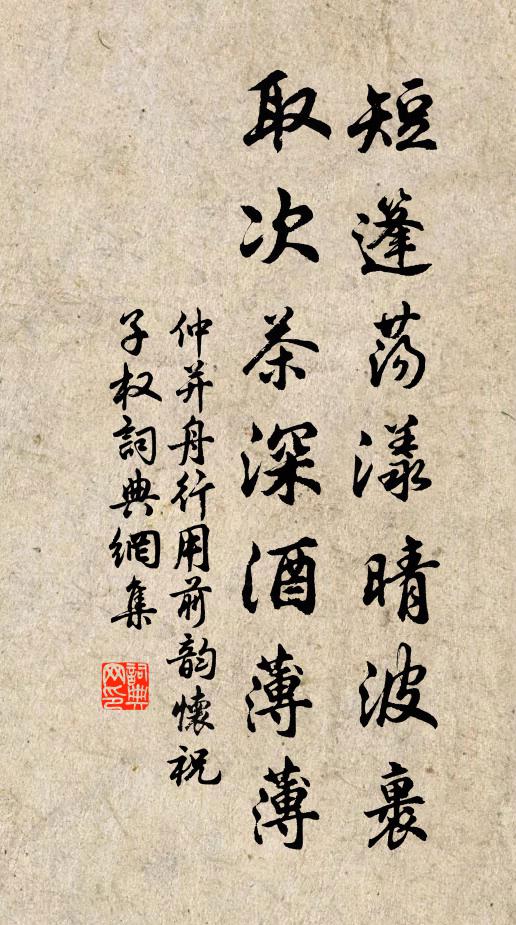 短蓬荡漾晴波裹
取次茶深酒薄薄
仲并舟行用前韵懷祝
子权詞典網集
詞典网印